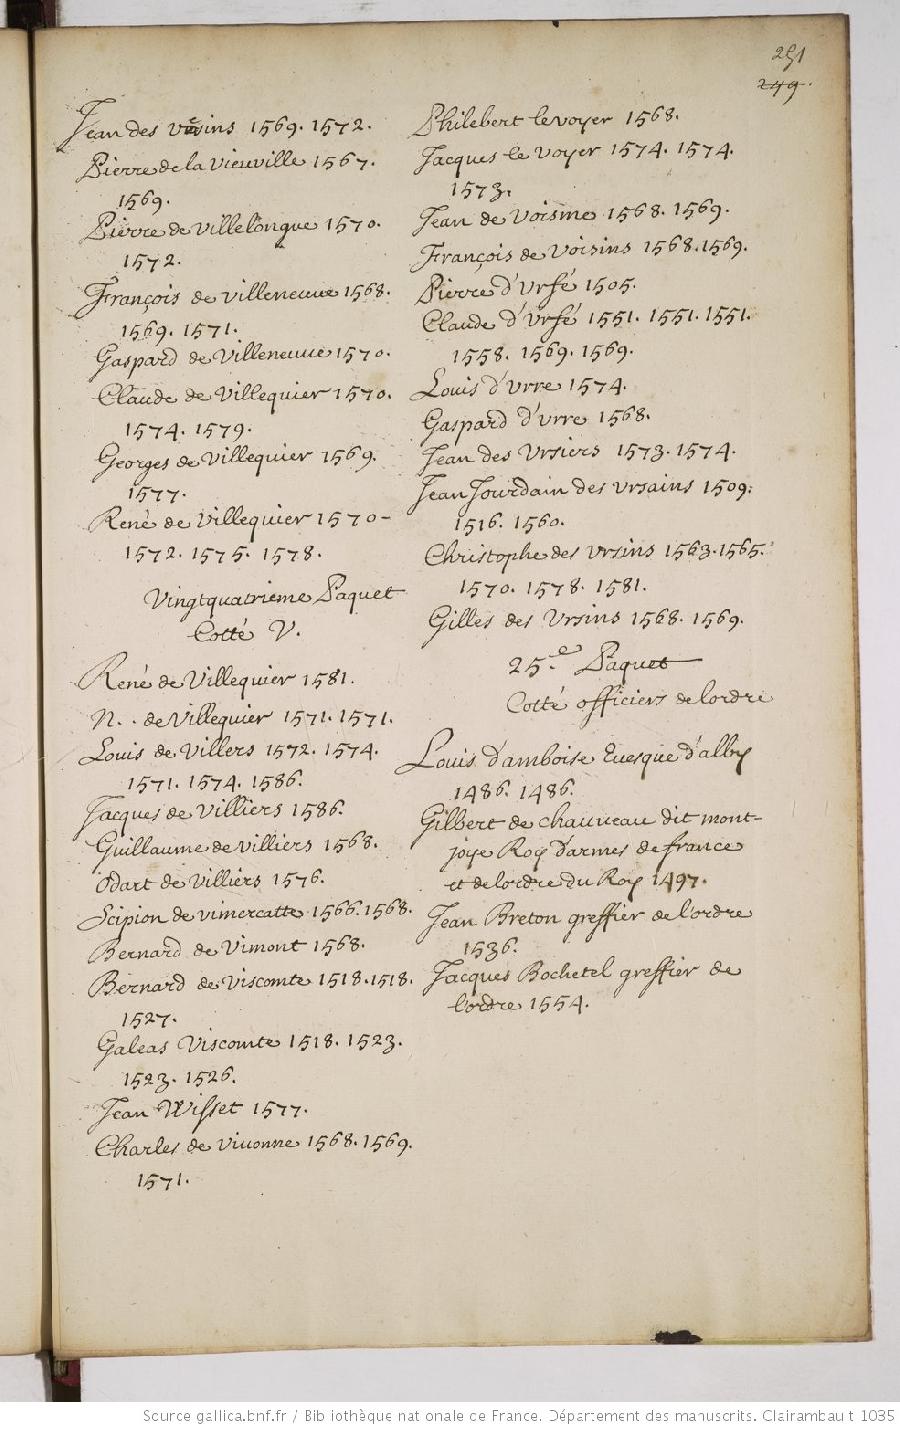 251
249.
Jean des vrsins 1569. 1572.
Pierre de la Vieuville 1567.
1569.
Pierre de Villelongue 1570.
1572.
François de Villeneuue 1568.
1569. 1571.
Gaspard de Villeneuue 1570.
Claude de Villequier 1570.
1574. 1579.
Georges de Villequier 1569.
1577.
René de Villequier 1570-
1572. 1575. 1578.
Vingtquatrieme Paquet
Cotté V.
René de Villequier 1581.
N. . de Villequier 1571. 1571.
Louis de Villers 1572. 1574.
1571. 1574. 1586.
Jacques de Villiers 1586.
Guillaume de Villiers 1568.
Odart de Villiers 1576.
Scipion de vimercatte 1566. 1568.
Bernard de Vimont 1568.
Bernard de Viscomte 1518. 1518.
1527.
Galeas Viscomte 1518. 1523.
1523. 1526.
Jean Wisset 1577.
Charles de Viuonne 1568. 1569.
1571.
Philebert le voyer 1568.
Jacques le Voyer 1574. 1574.
1573.
Jean de Voisine 1568. 1569.
François de Voisins 1568. 1569.
Pierre d'Vrfé 1505.
Claude d'Vrfé 1551. 1551. 1551.
1558. 1569. 1569.
Louis d'Vrre 1574.
Gaspard d'vrre 1568.
Jean des Vrsiers 1573. 1574.
Jean Jourdain des vrsains 1509.
1516. 1560.
Christophe des Vrsins 1563. 1565.
1570. 1578. 1581.
Gilles des Vrsins 1568. 1569.
25.e Paquet
Cotté officiers de lordre
Louis d'amboise Euesque d'alby
1486. 1486.
Gilbert de chauueau dit mont-
joye Roy d'armes de france
et de lordre du Roy 1497.
Jean Breton greffier de l'ordre
1536.
Jacques Bochetel greffier de
l'ordre 1554.
Source gallica.bnf.fr / Bibliothèque nationale de France. Département des manuscrits. Clairambault 1035